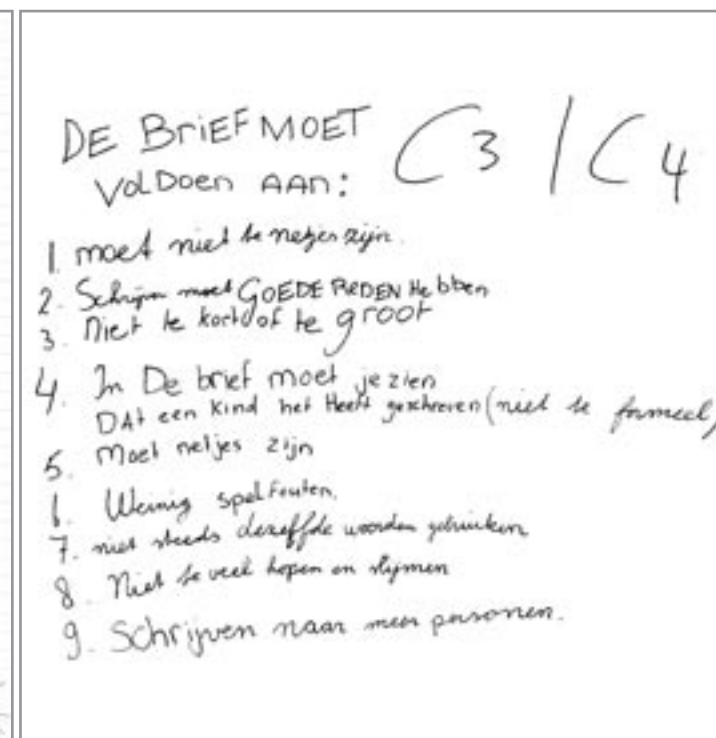 DE BriEF MOET
VolDoen AAn: C3 / C4
1. moet niet te netjes zijn.
2. Schrijven moet GOEDE REDEN HEbben
3. niet te kort of te groot
4. In De brief moet je zien
DAt een kind het Heeft geschreven (niet te formeel)
5. Moet netjes zijn
6. Weinig spelfouten.
7. niet steeds dezelfde woorden gebruiken
8. Niet te veel hopen en slijmen
9. Schrijven naar meer personen.